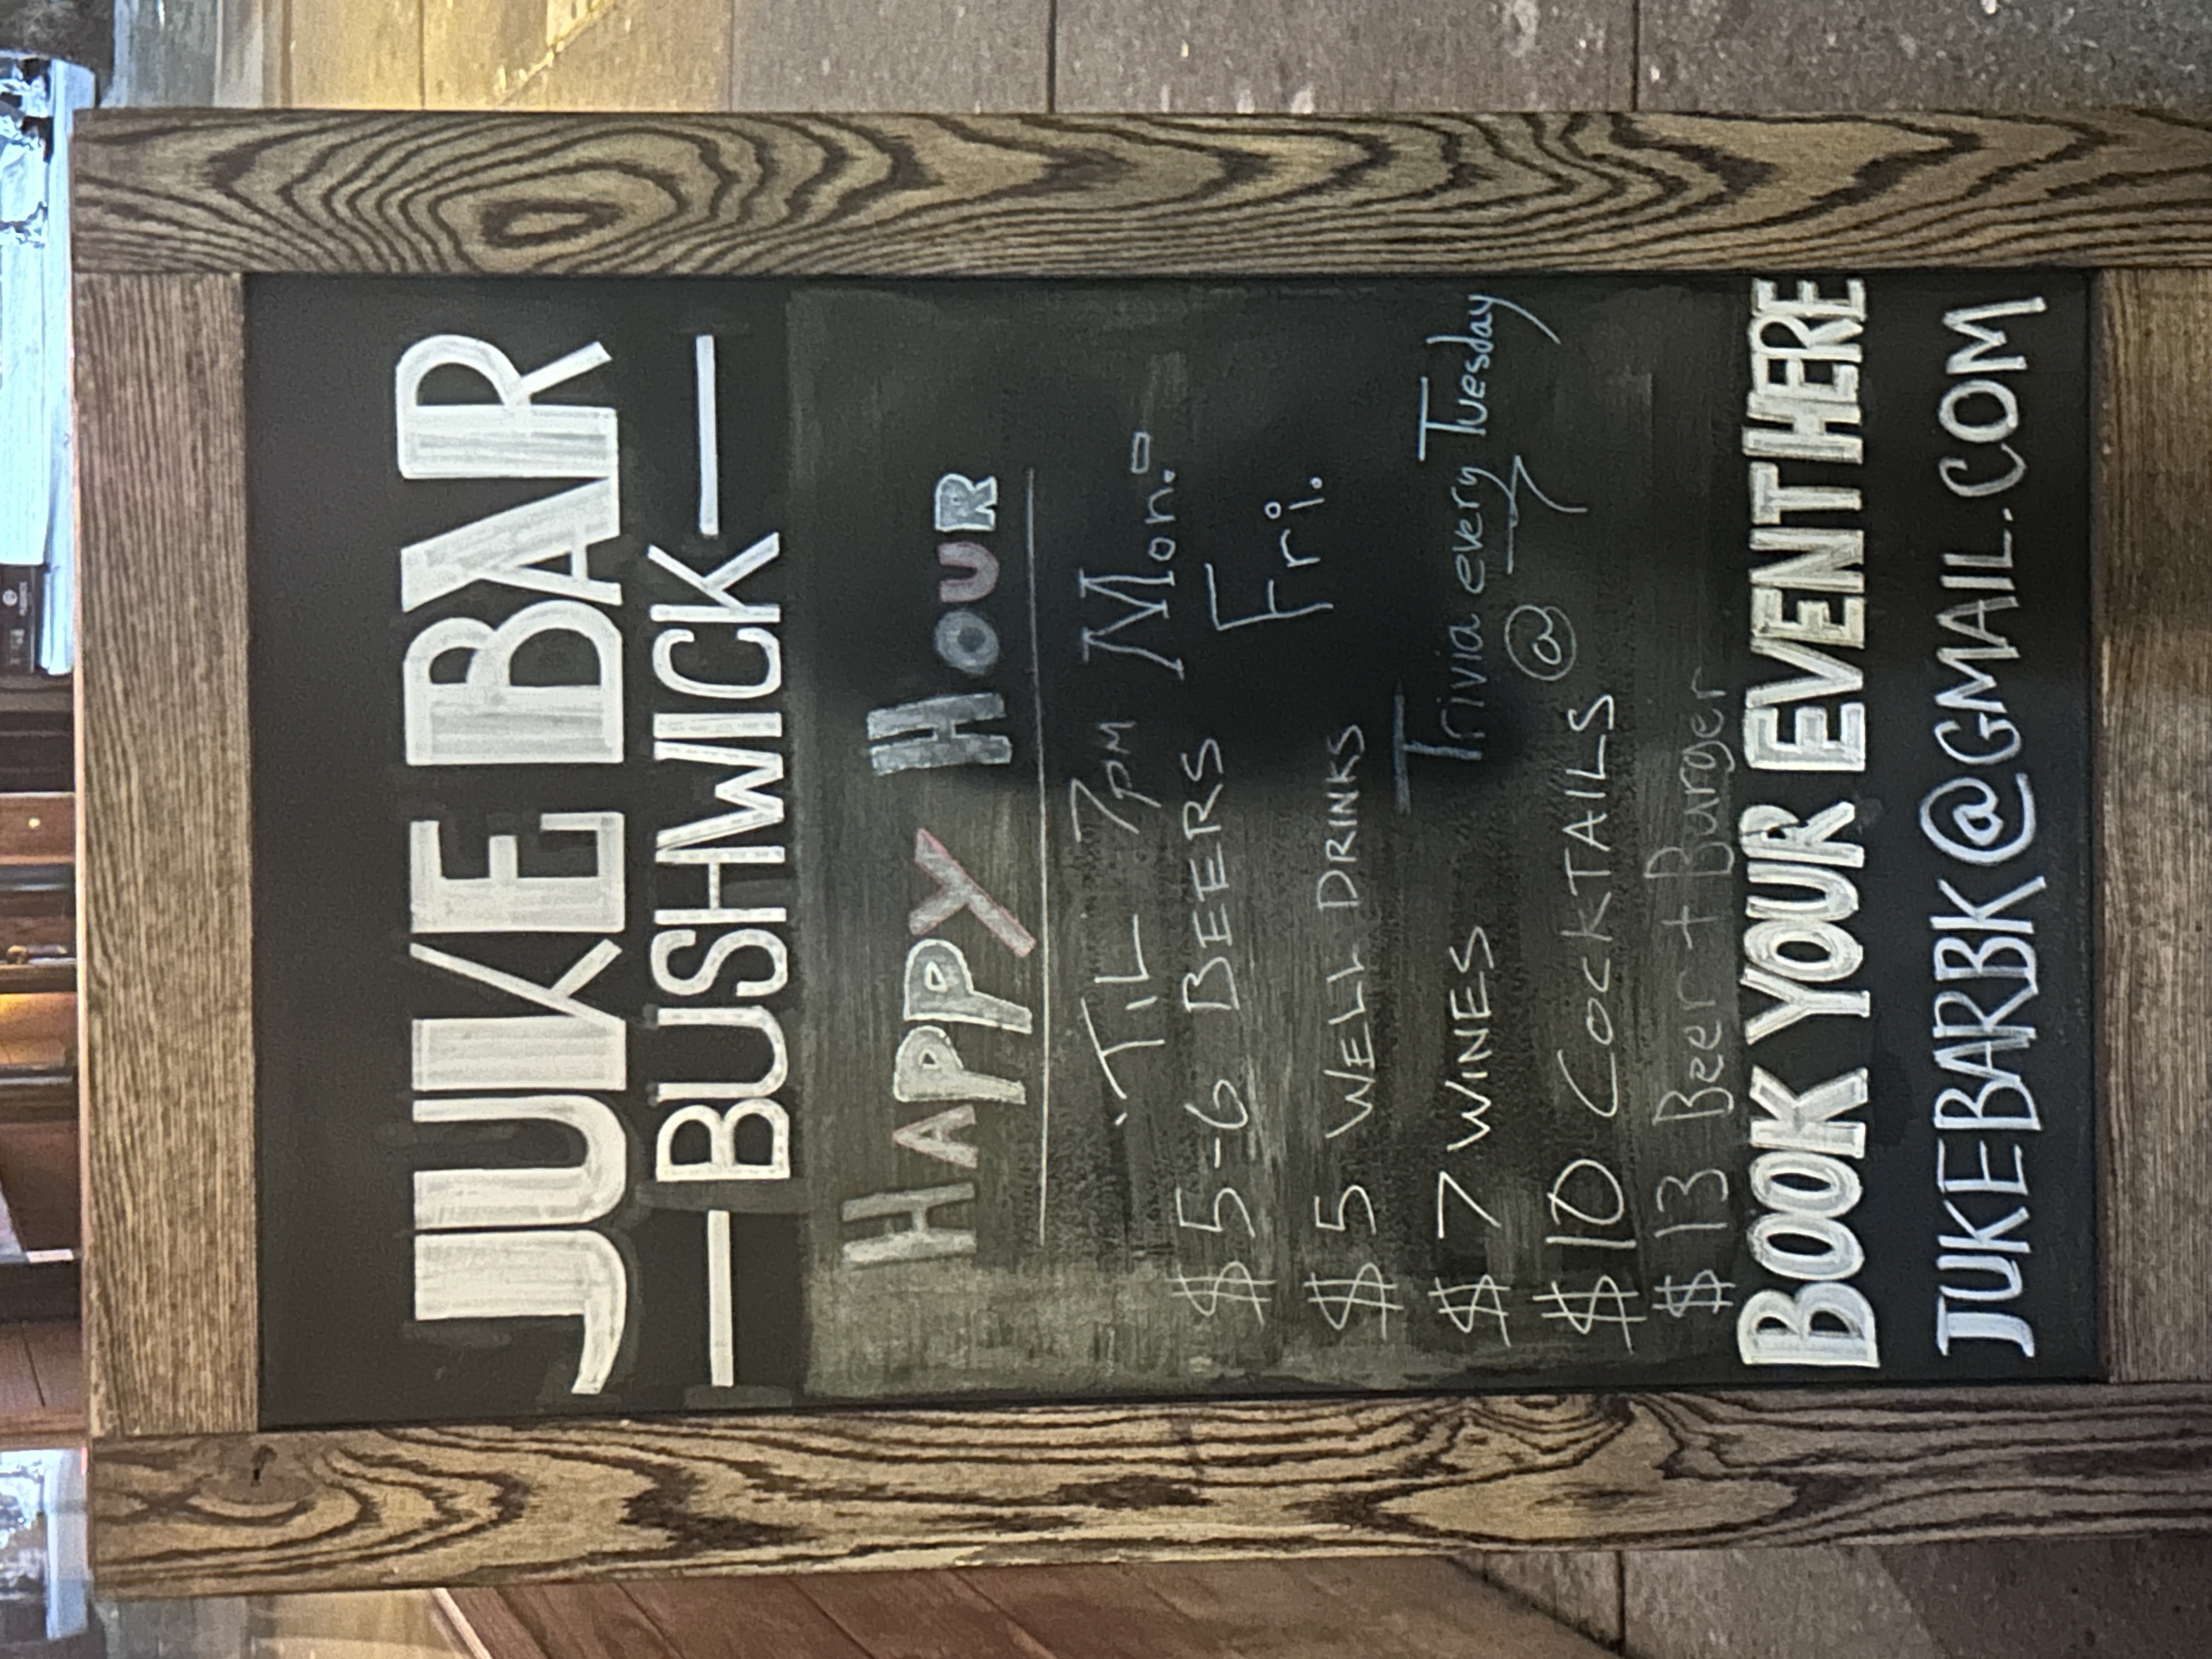 JUKE BAR
—BUSHWICK—
HAPPY HOUR
'TIL 7PM Mon.-
Fri.
$5-6 BEERS
$5 WELL DRINKS
$7 WINES
Trivia every Tuesday
@ 7
$10 COCKTAILS
$13 Beer + Burger
BOOK YOUR EVENT HERE
JUKEBARBK@GMAIL.COM